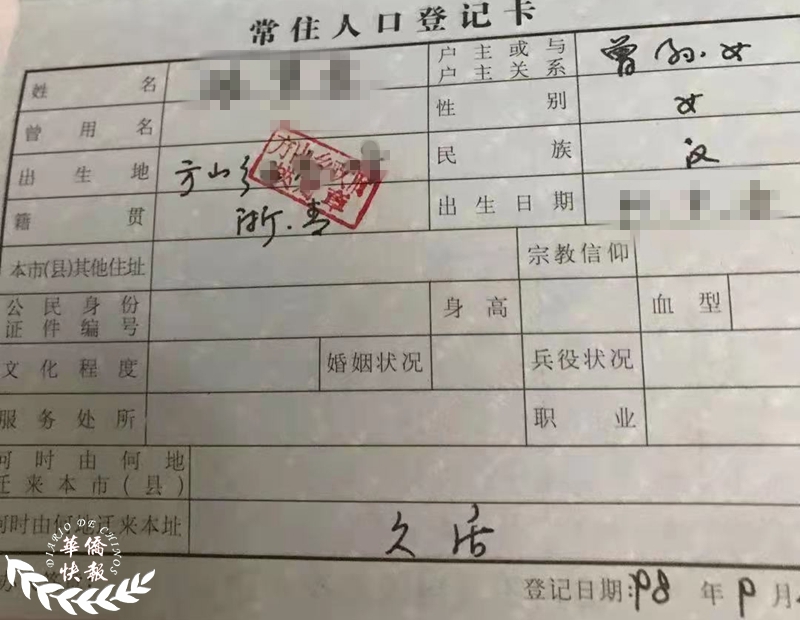 常住人口登记卡
姓名 户主或与户主关系 曾孙女
曾用名 性别 女
出生地 方山乡 民族 汉
籍贯 浙.青 出生日期
本市(县)其他住址 宗教信仰
公民身份证件编号 身高 血型
文化程度 婚姻状况 兵役状况
服务处所 职业
何时由何地迁来本市(县)
何时由何地迁来本址 久居
登记日期: 98 年 9 月
DIARIO DE CHINOS
華僑
快報